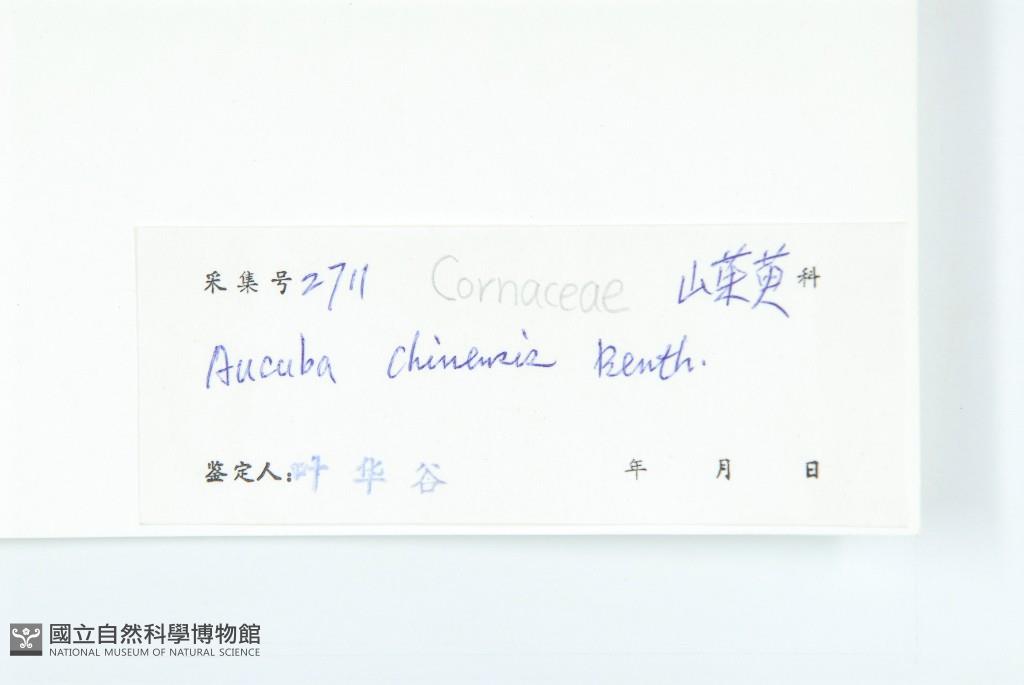 采集号 2711 Cornaceae 山茱萸科
Aucuba chinensis Benth.
鉴定人:叶华谷 年 月 日
國立自然科學博物館
NATIONAL MUSEUM OF NATURAL SCIENCE